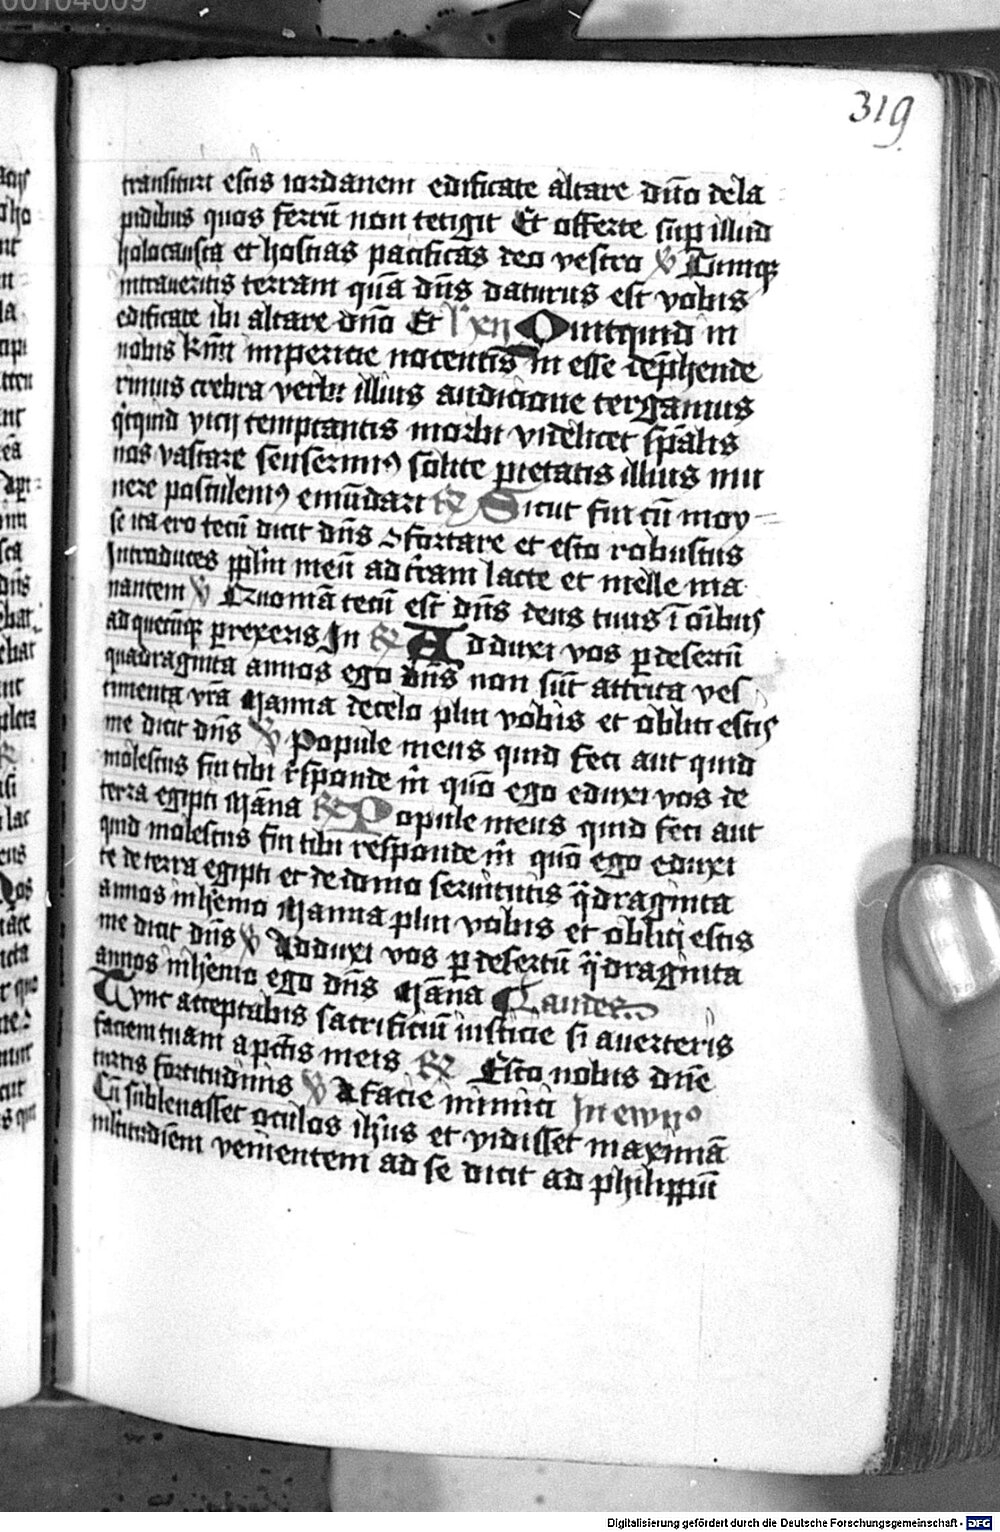 00104009
319
transituri estis iordanem edificate altare dño dela
pidibus quos ferrū non tetigit Et offerte sup illud
holocausta et hostias pacificas deo vestro ℣ Cumqꝫ
intraveritis terram quā dñs daturus est vobis
edificate ibi altare dño Et Quitquid in
nobis impericie nocentis in esse dep̄hende
rimus crebra verbi illius audicione tergamus
q̇tquid vicij temptantis morbi videlicet sp̄alis
nos vastare senserimꝰ solite pietatis illius mu
nere postulemꝰ emūdari ℟ Sicut fui cū moy
se ita ero tecū dicit dñs ↄfortare et esto robustus
Introduces pplm̄ meū ad t̄ram lacte et melle ma
nantem ℣ Qnomā tecū est dñs deus tuus ī oībus
ad quecūqꝫ perrexeris In ℟ Adduxi vos p̱ desertū
quadraginta annos ego dñs non sūt attrita ves
timenta vr̄a Manna de celo plui vobis et obliti estis
me dicit dñs ℣ Popule meus quid feci aut quid
molestus fui tibi r̄sponde m̄ quō ego eduxi vos de
terra egipti Māna ℟ Popule meus quid feci aut
quid molestus fui tibi responde m̄ quō ego eduxi
te de terra egipti et de domo servitutis q̈draginta
annos in h̄emo Manna plui vobis et obliti estis
me dicit dñs ℣ Adduxi vos p̱ desertū q̈draginta
annos in h̄emo ego dñs Māna Laudes
Tunc acceptabis sacrificiū iusticie si averteris
faciem tuam a p̄ctis meis ℟ Esto nobis dñe
turris fortitudinis ℣ A facie inimici In ewnᵒ
Cū sublevasset oculos ih̄us et vidisset maximā
mltitudīem venientem ad se dicit ad philippū
Digitalisierung gefördert durch die Deutsche Forschungsgemeinschaft - DFG